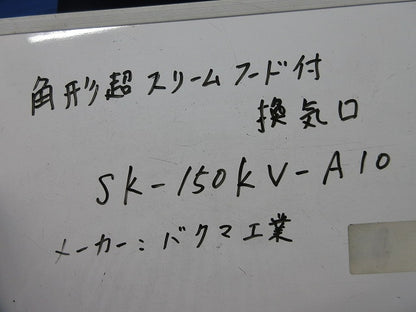 角形超スリームフード付
換気口
SK-150KV-A10
メーカー:バクマ工業